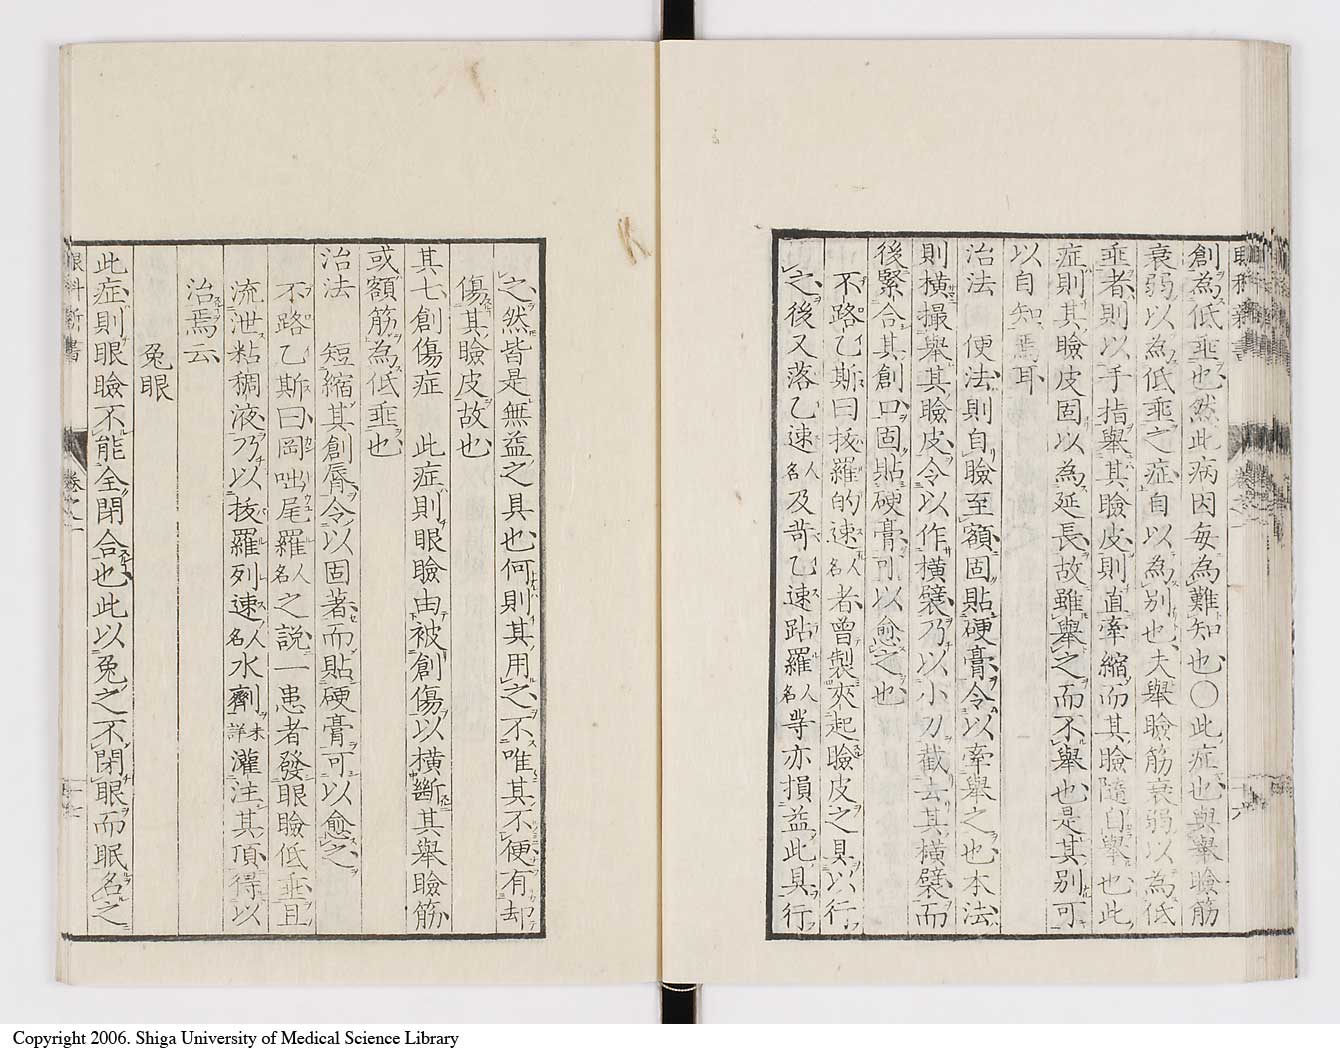 創為低埀也然此病因毎為難知也〇此症也與舉瞼筋
衰弱以為低乖之症自以為別也夫舉瞼筋衰弱以為低
埀者則以手指舉其瞼皮則直牽縮而其瞼隨自舉也此
症則其瞼皮固以為延長故雖舉之而不舉也是其別可
以自知焉耳
治法 便法則自瞼至額固貼硬膏令以牽舉之也本法
則横撮舉其瞼皮令以作横襞乃以小刀截去其横襞而
後緊合其創口固貼硬膏可以愈之也
不路乙斯曰拔羅的速人名者曾製夾起瞼皮之具以行
之後又落乙速人名及苛乙速跕羅人名等亦損益此具行
之然皆是無益之具也何則其用之不唯其不便有却
傷其瞼皮故也
其七創傷症 此症則眼瞼由被創傷以横斷其舉瞼筋
或額筋為低乖也
治法 短縮其創脣令以固著而貼硬膏可以愈之
不路乙斯曰岡咄尾羅人名之説一患者發眼瞼低埀且
流泄粘稠液乃以拔羅列速人名水劑未詳灌注其頂得以
治焉云
兔眼
此症則眼瞼不能全閉合也此以兔之不閉眼而眠名之
眼科新書 卷之二
Copyright 2006. Shiga University of Medical Science Library